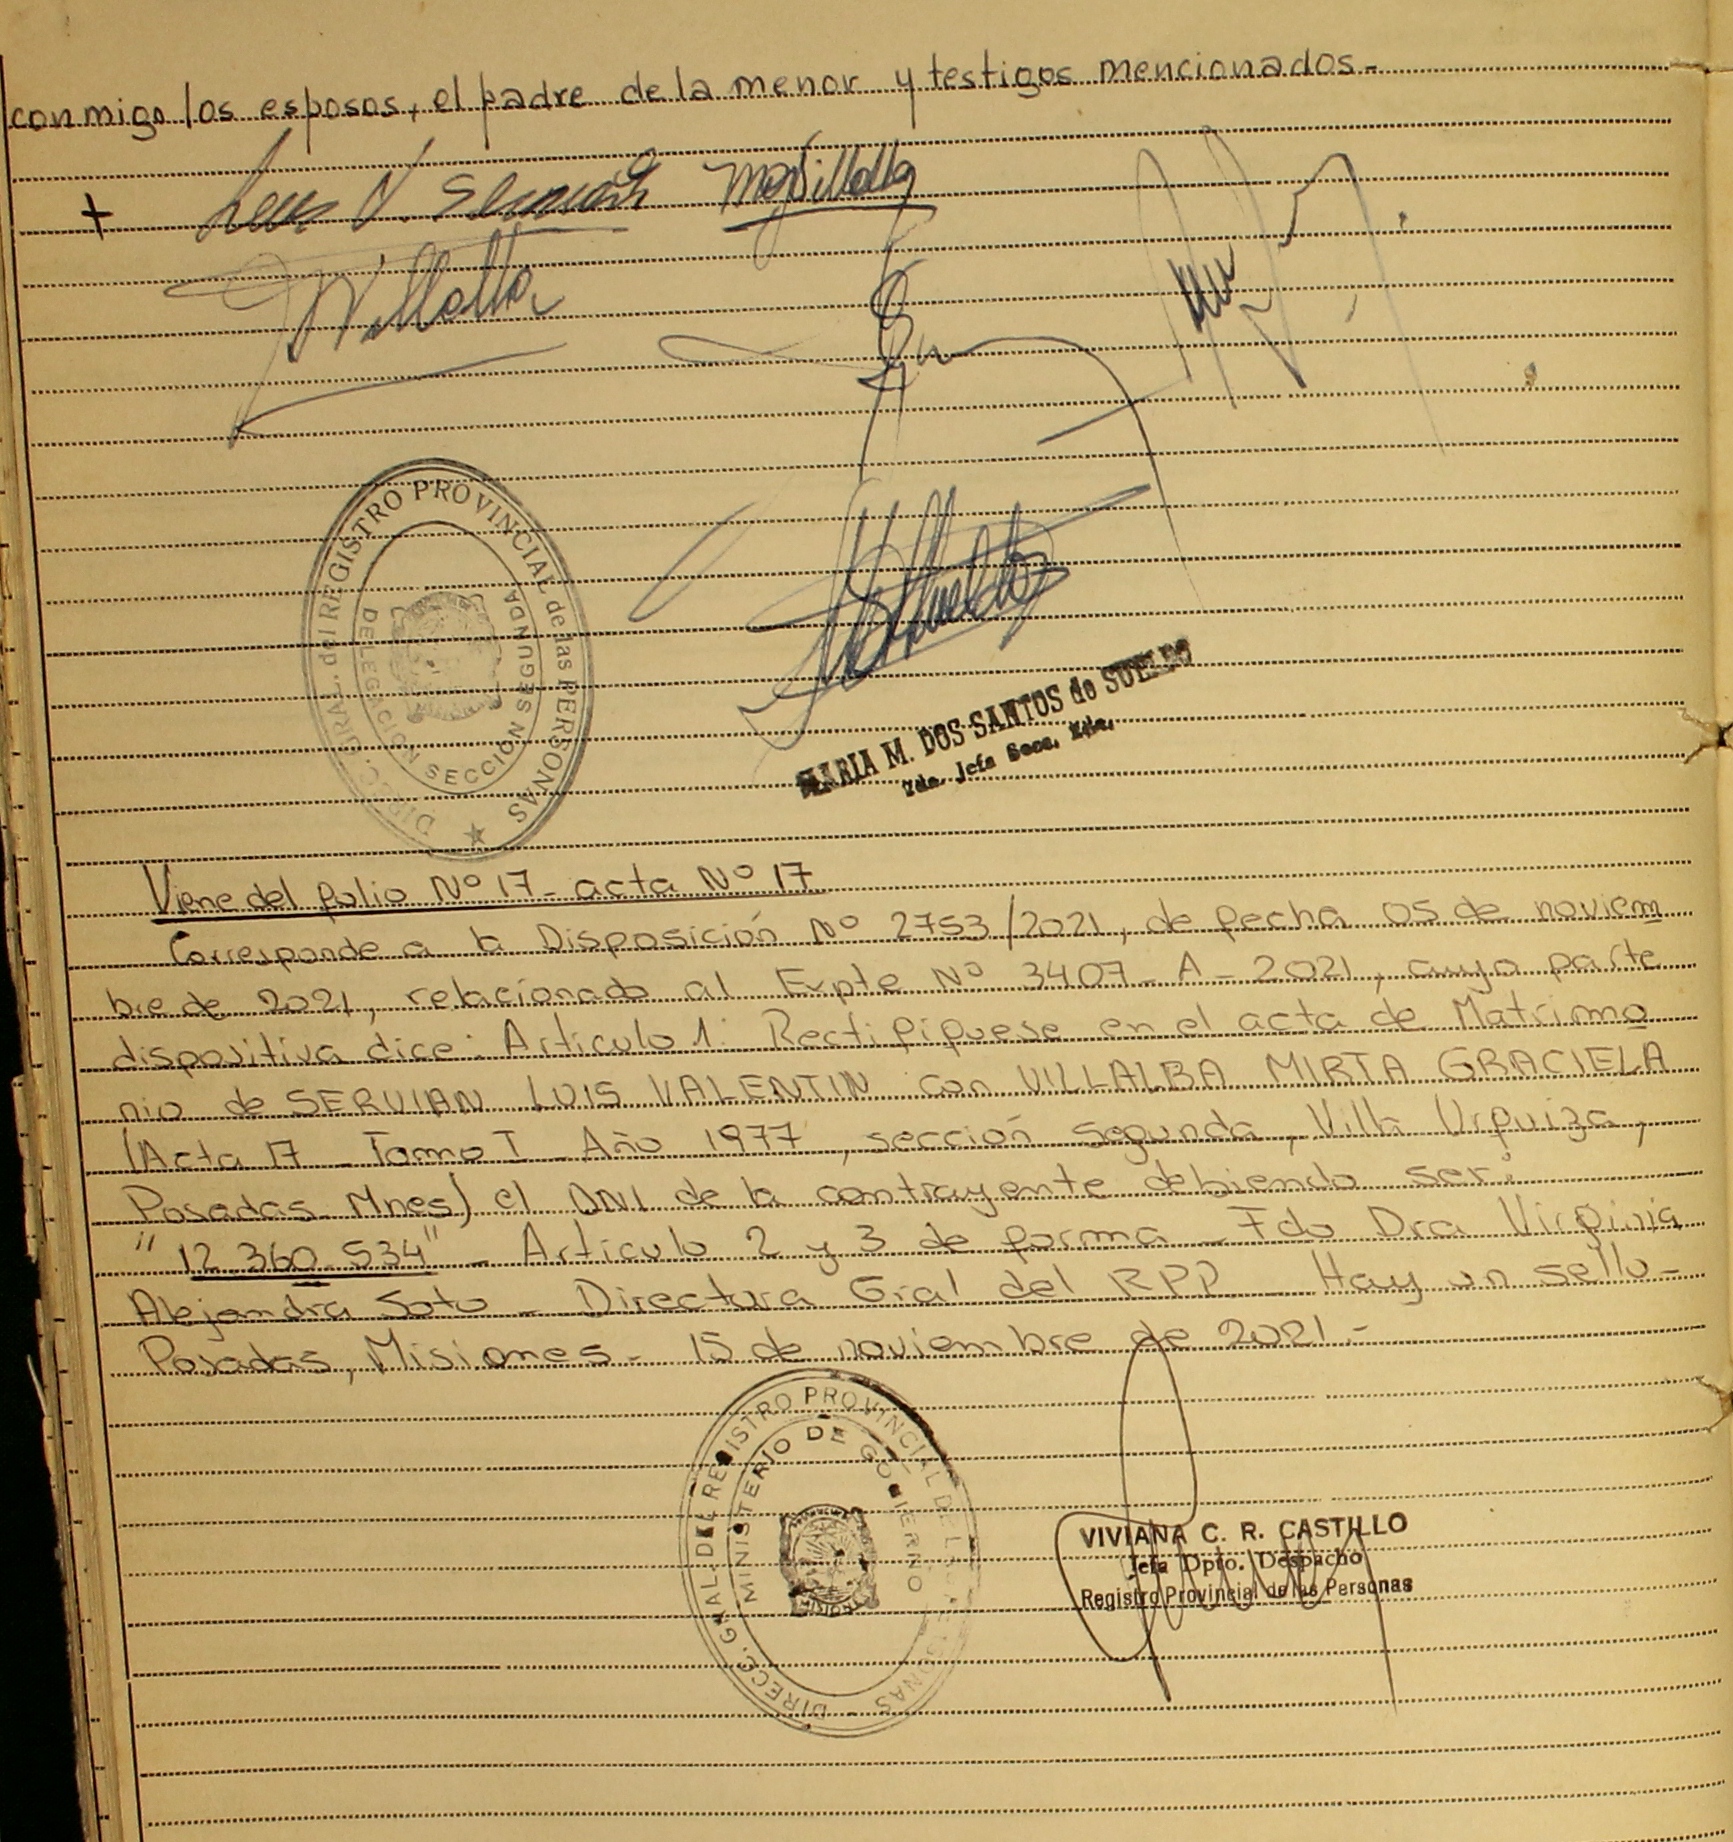 conmigo los esposos, el padre de la menor y testigos mencionados.-
Luis V. Servian
MGVillalba
Villalba
DIRECC. GRAL. del REGISTRO PROVINCIAL de las PERSONAS
DELEGACION SECCION SEGUNDA
MARIA M. DOS SANTOS de SUELDO
2da. Jefa Secc. 2da.
Viene del folio Nº 17 - acta Nº 17
Corresponde a la Disposición Nº 2753/2021, de fecha 05 de noviem
bre de 2021, relacionado al Expte Nº 3407-A-2021, cuya parte
dispositiva dice: Artículo 1: Rectifíquese en el acta de Matrimo
nio de SERVIAN LUIS VALENTIN con VILLALBA MIRTA GRACIELA
(Acta 17 - Tomo I - Año 1977, sección segunda, Villa Urquiza,
Posadas - Mnes) el DNI de la contrayente debiendo ser:
"12.360.534" - Artículo 2 y 3 de forma - Fdo Dra Virginia
Alejandra Soto - Directora Gral del RPP - Hay un sello -
Posadas, Misiones - 15 de noviembre de 2021.-
DIRECC. GRAL. DEL REGISTRO PROVINCIAL DE LAS PERSONAS
MINISTERIO DE GOBIERNO
VIVIANA C. R. CASTILLO
Jefa Dpto. Despacho
Registro Provincial de las Personas